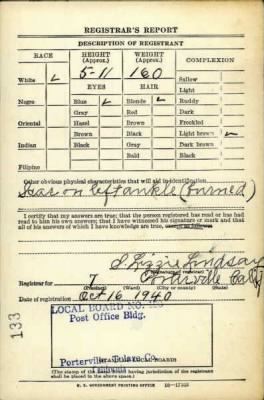 REGISTRAR'S REPORT
DESCRIPTION OF REGISTRANT
RACE HEIGHT (Approx.) WEIGHT (Approx.) COMPLEXION
White 5-11 160 Sallow
EYES HAIR Light
Negro Blue Blonde Ruddy
Gray Red Dark
Oriental Hazel Brown Freckled
Brown Black Light brown
Indian Black Gray Dark brown
Bald Black
Filipino
Other obvious physical characteristics that will aid in identification
Scar on left ankle (burned)
I certify that my answers are true; that the person registered has read or has had
read to him his own answers; that I have witnessed his signature or mark and that
all of his answers of which I have knowledge are true, except as follows:
Lizzie Lindsay
Registrar for 7 Porterville Calif
(Precinct) (Ward) (City or county) (State)
Date of registration Oct 16 1940
LOCAL BOARD NO.
Post Office Bldg.
133
Porterville, Tulare Co.
(The stamp of the Local Board having jurisdiction of the registrant
shall be placed in the above space.)
U. S. GOVERNMENT PRINTING OFFICE